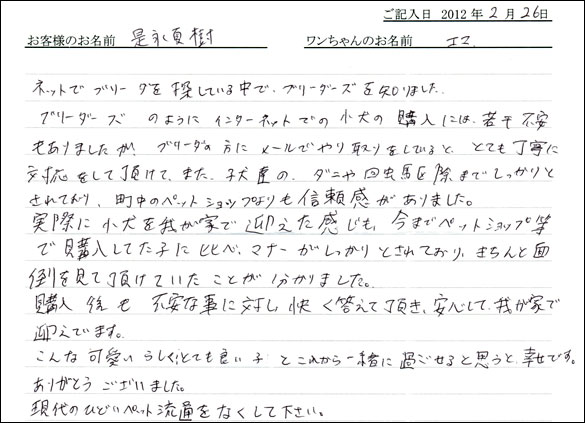 ご記入日 2012年2月26日
お客様のお名前 是永真樹 ワンちゃんのお名前 エマ
ネットでブリーダを探している中で、ブリーダーズを知りました。
ブリーダーズのようにインターネットでの小犬の購入には、若干不安
もありましたが、ブリーダの方にメールでやり取りをしていると、とても丁寧に
対応をして頂けて、また、子犬達の、ダニや回虫駆除までしっかりと
されており、町中のペットショップよりも信頼感がありました。
実際に小犬を我が家で迎えた感じも、今までペットショップ等
で購入してた子に比べ、マナーがしっかりとされており、きちんと面
倒を見て頂けていたことが分かりました。
購入後も不安な事に対し、快く答えて頂き、安心して、我が家で
迎えています。
こんな可愛いらしく、とても良い子とこれから一緒に過ごせると思うと、幸せです。
ありがとうございました。
現代のひどいペット流通をなくして下さい。